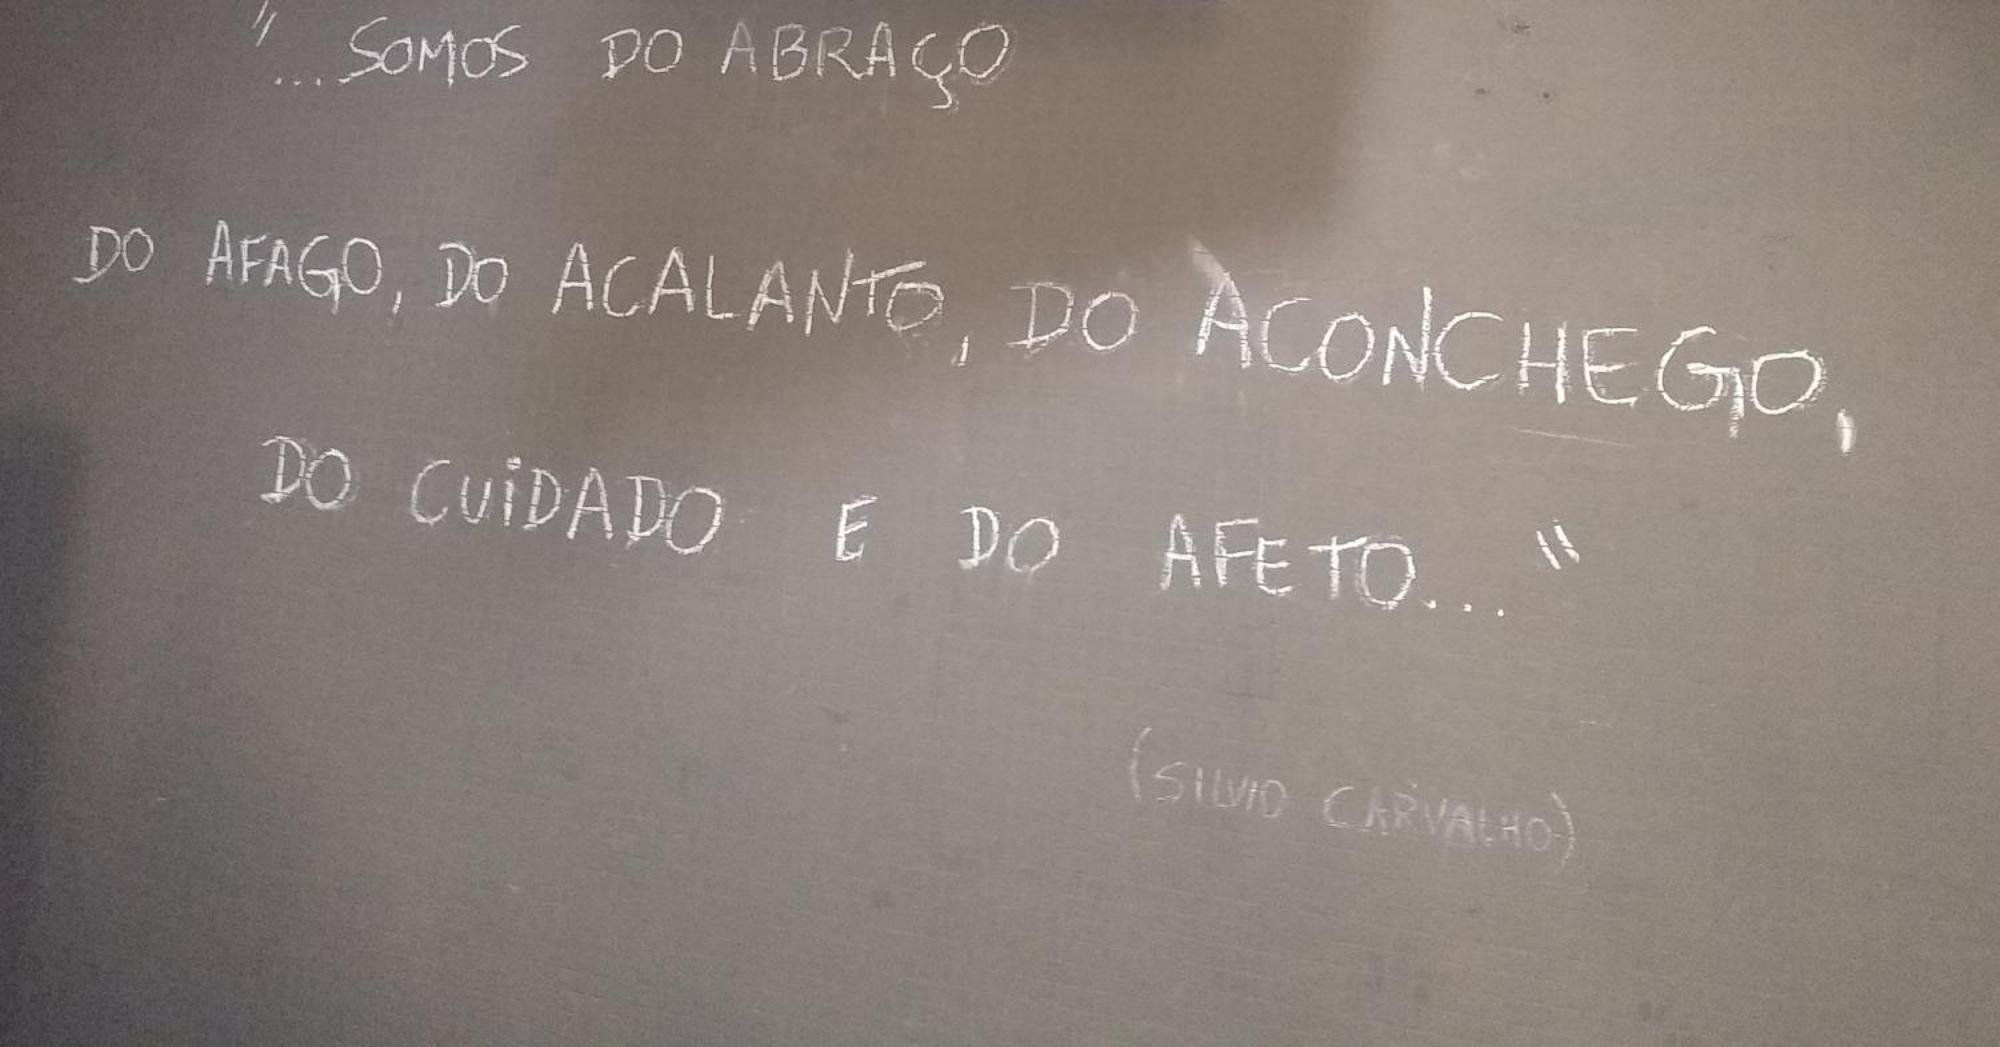 "...SOMOS DO ABRAÇO
DO AFAGO, DO ACALANTO, DO ACONCHEGO,
DO CUiDADO E DO AFETO..."
(SILVIO CARVALHO)